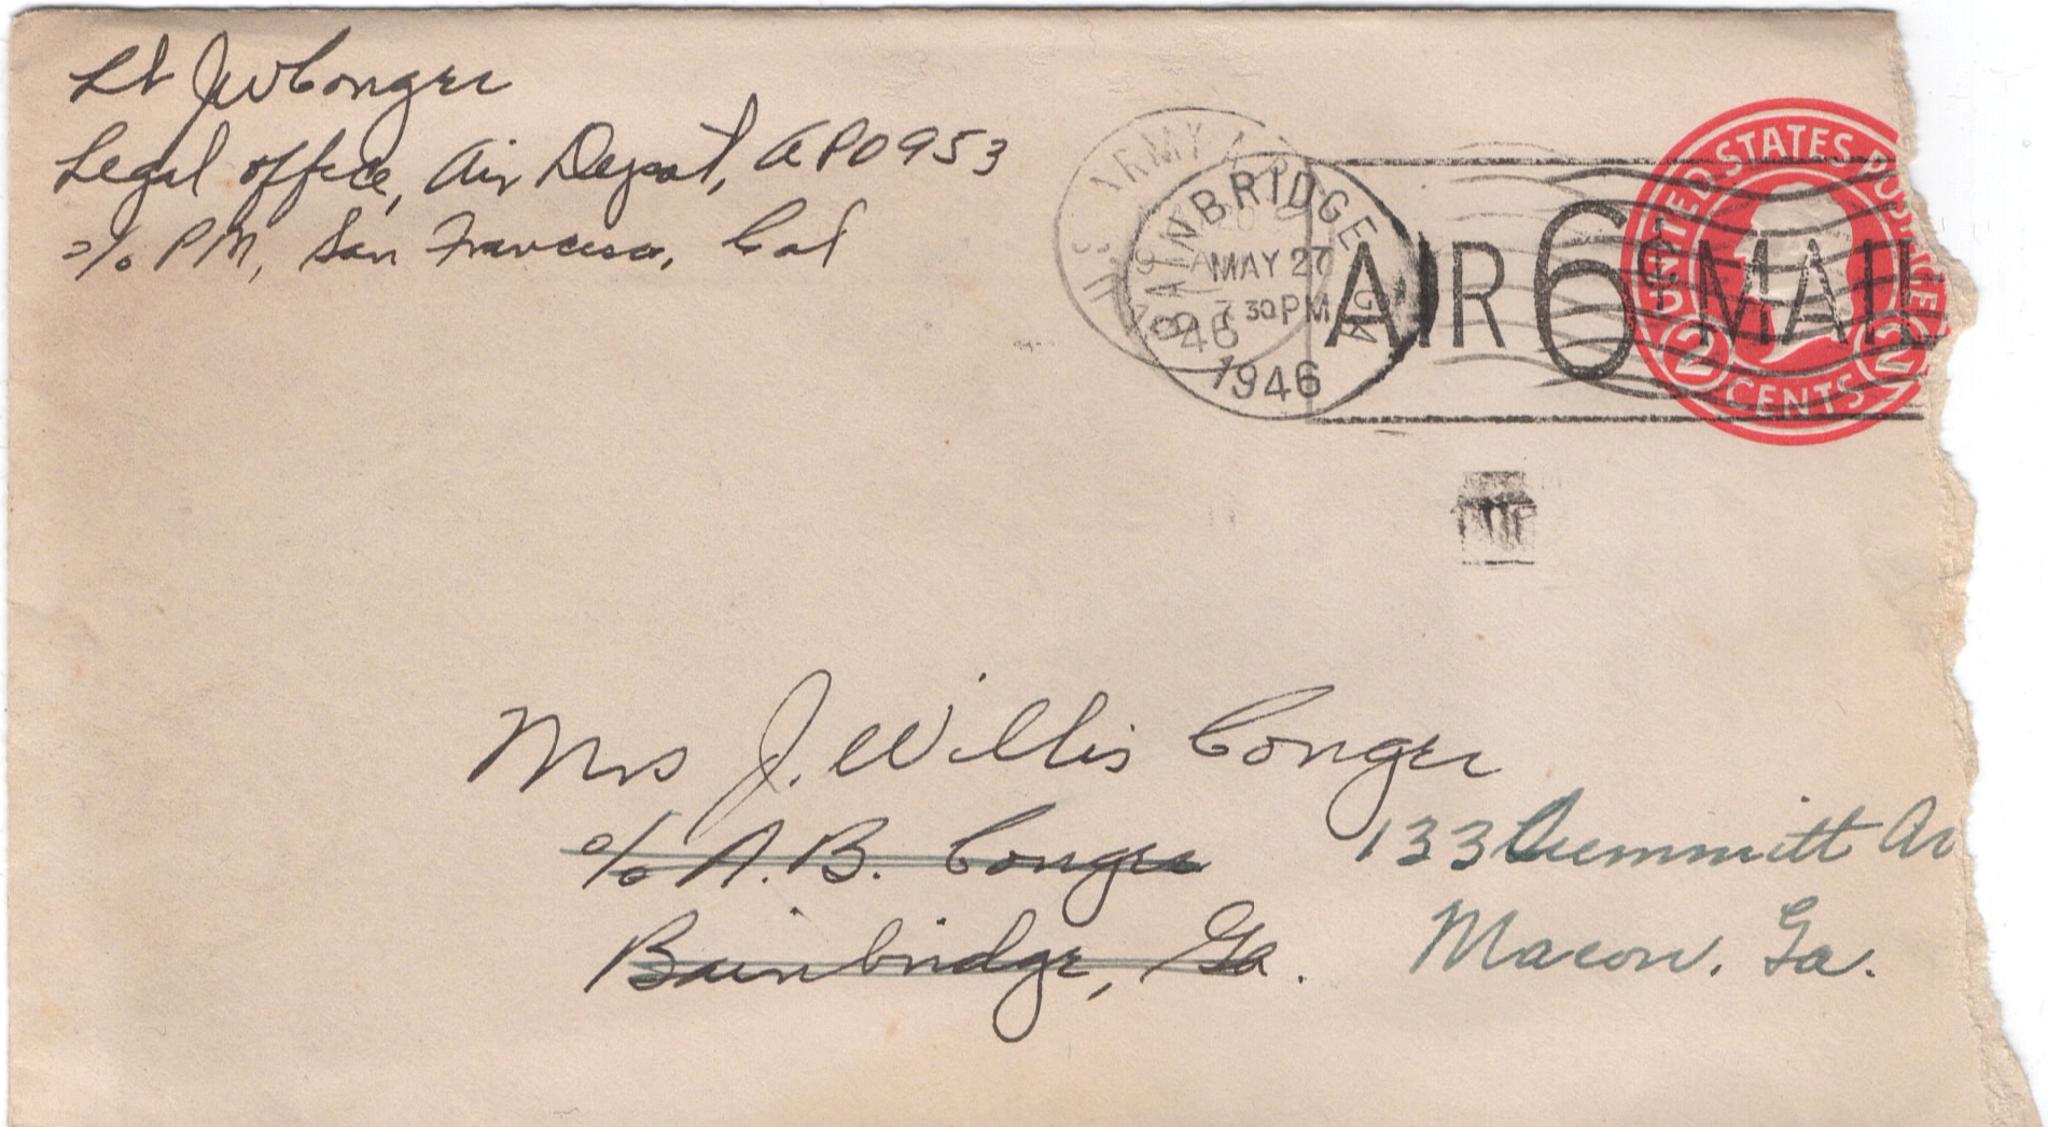 Lt JW Conger
Legal office, Air Depot, APO 953
c/o PM, San Francisco, Cal
U.S. ARMY
BAINBRIDGE GA
MAY 27
7 30 PM
1946
46
AIR 6¢ MAIL
UNITED STATES POSTAGE
2 CENTS 2
Mrs J. Willis Conger
c/o A. B. Conger
Bainbridge, Ga.
133 Av
Macon, Ga.